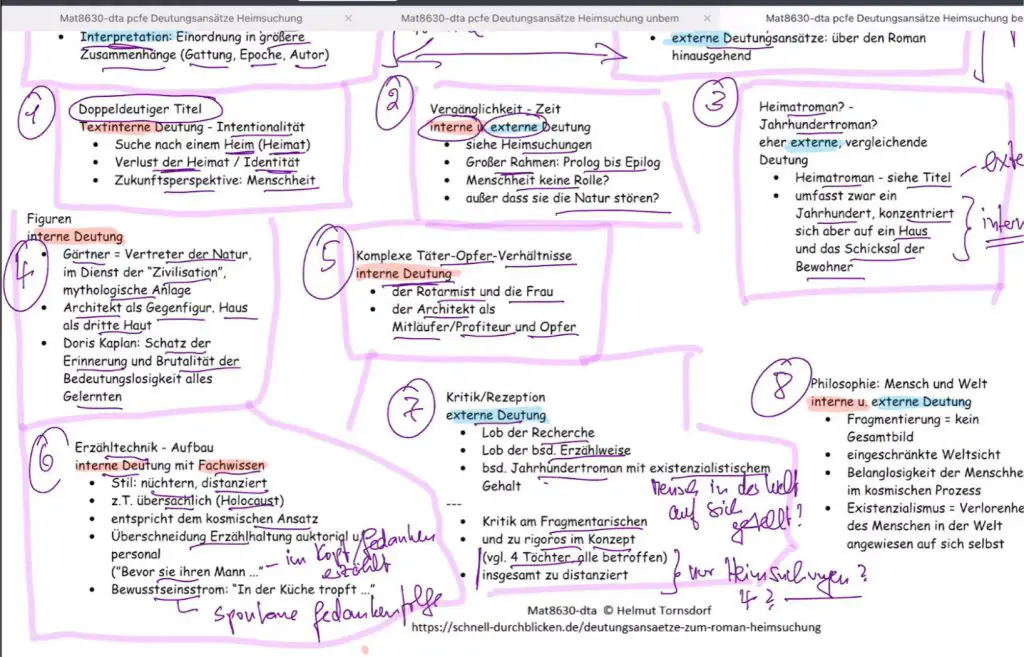 Mat8630-dta pcfe Deutungsansätze Heimsuchung
Mat8630-dta pcfe Deutungsansätze Heimsuchung unbem
Mat8630-dta pcfe Deutungsansätze Heimsuchung be
Interpretation: Einordnung in größere
Zusammenhänge (Gattung, Epoche, Autor)
externe Deutungsansätze: über den Roman
hinausgehend
1
Doppeldeutiger Titel
Textinterne Deutung - Intentionalität
Suche nach einem Heim (Heimat)
Verlust der Heimat / Identität
Zukunftsperspektive: Menschheit
2
Vergänglichkeit - Zeit
interne u. externe Deutung
siehe Heimsuchungen
Großer Rahmen: Prolog bis Epilog
Menschheit keine Rolle?
außer dass sie die Natur stören?
3
Heimatroman? -
Jahrhundertroman?
eher externe, vergleichende
Deutung
Heimatroman - siehe Titel
umfasst zwar ein
Jahrhundert, konzentriert
sich aber auf ein Haus
und das Schicksal der
Bewohner
exte
intern
4
Figuren
interne Deutung
Gärtner = Vertreter der Natur,
im Dienst der "Zivilisation",
mythologische Anlage
Architekt als Gegenfigur. Haus
als dritte Haut
Doris Kaplan: Schatz der
Erinnerung und Brutalität der
Bedeutungslosigkeit alles
Gelernten
5
Komplexe Täter-Opfer-Verhältnisse
interne Deutung
der Rotarmist und die Frau
der Architekt als
Mitläufer/Profiteur und Opfer
6
Erzähltechnik - Aufbau
interne Deutung mit Fachwissen
Stil: nüchtern, distanziert
z.T. übersachlich (Holocaust)
entspricht dem kosmischen Ansatz
Überschneidung Erzählhaltung auktorial u
personal
("Bevor sie ihren Mann ..."
im Kopf/Gedanken
erzählt
Bewusstseinsstrom: "In der Küche tropft ..."
spontane Gedankenfolge
7
Kritik/Rezeption
externe Deutung
Lob der Recherche
Lob der bsd. Erzählweise
bsd. Jahrhundertroman mit existenzialistischem
Gehalt
Mensch in der Welt
auf sich
gestellt?
---
Kritik am Fragmentarischen
und zu rigoros im Konzept
(vgl. 4 Töchter alle betroffen)
insgesamt zu distanziert
nur Heimsuchungen?
4?
8
Philosophie: Mensch und Welt
interne u. externe Deutung
Fragmentierung = kein
Gesamtbild
eingeschränkte Weltsicht
Belanglosigkeit der Menschhe
im kosmischen Prozess
Existenzialismus = Verlorenhe
des Menschen in der Welt
angewiesen auf sich selbst
Mat8630-dta © Helmut Tornsdorf
https://schnell-durchblicken.de/deutungsansaetze-zum-roman-heimsuchung